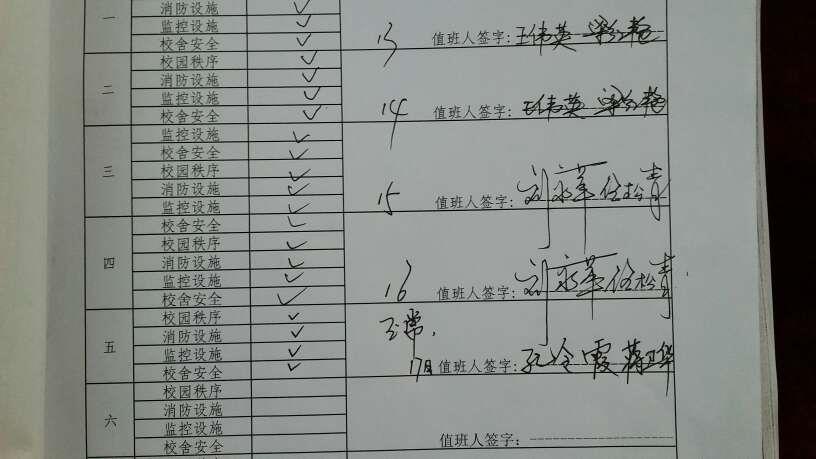 一
消防设施 ✓
监控设施 ✓
校舍安全 ✓
13 值班人签字: 王伟英
二
校园秩序 ✓
消防设施 ✓
监控设施 ✓
校舍安全 ✓
14 值班人签字: 王伟英
三
监控设施 ✓
校舍安全 ✓
校园秩序 ✓
消防设施 ✓
监控设施 ✓
15 值班人签字: 刘永革 任松青
四
校舍安全 ✓
校园秩序 ✓
消防设施 ✓
监控设施 ✓
校舍安全 ✓
16 值班人签字: 刘永革 任松青
五
校园秩序 ✓
消防设施 ✓
监控设施 ✓
校舍安全 ✓
正常.
17日 值班人签字: 孔令霞
六
校园秩序
消防设施
监控设施
校舍安全
值班人签字: